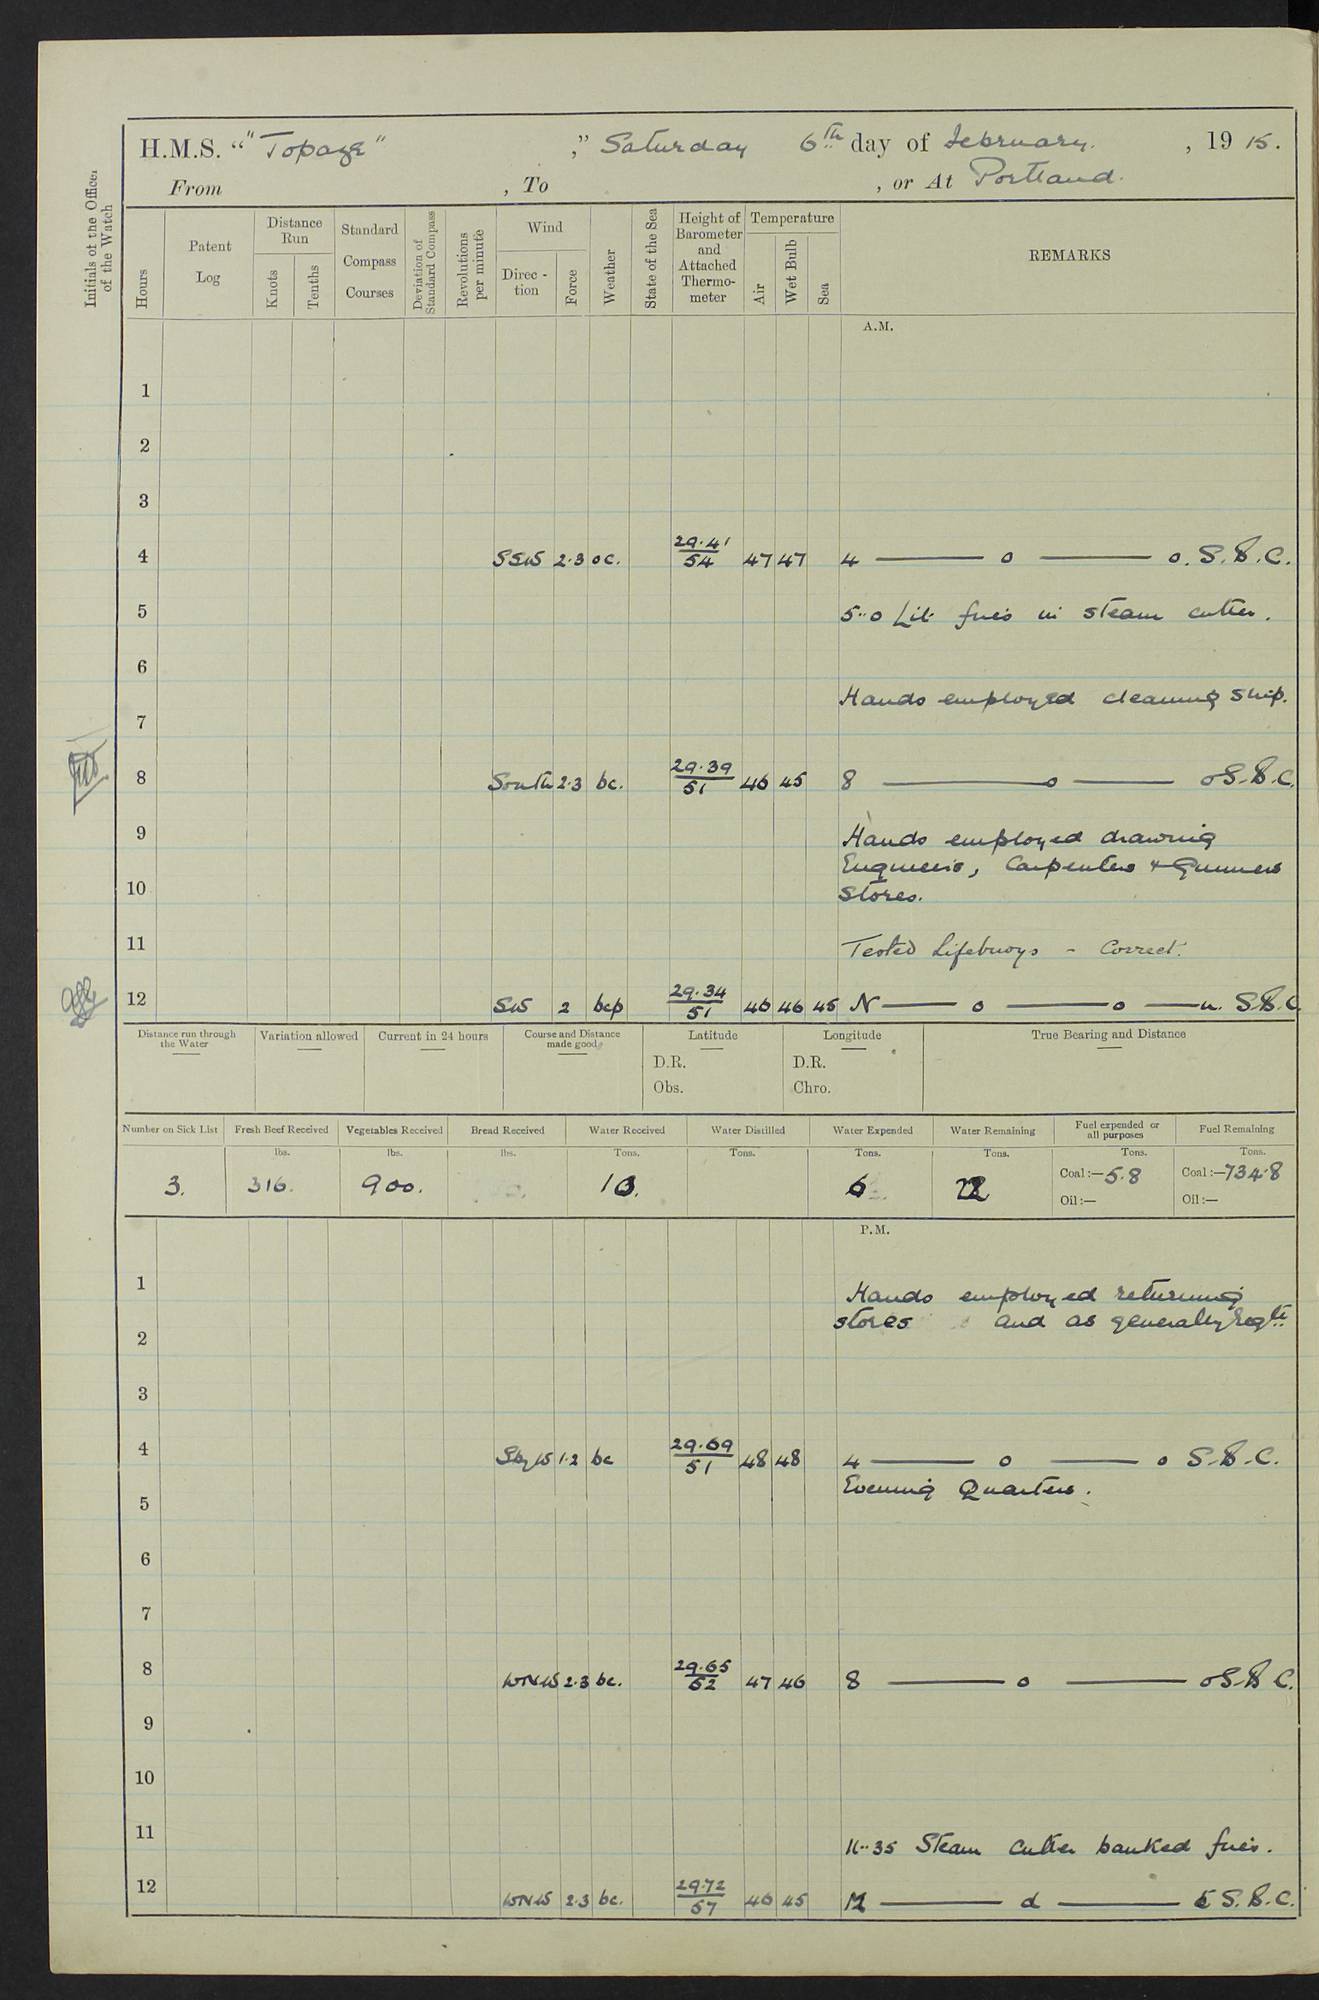 H.M.S. “"Topaze" ,” Saturday 6th day of February. , 1915.
From , To , or At Portland.
Initials of the Officer of the Watch
Hours
Patent Log
Distance Run
Knots
Tenths
Standard Compass Courses
Deviation of Standard Compass
Revolutions per minute
Wind
Direc-tion
Force
Weather
State of the Sea
Height of Barometer and Attached Thermo-meter
Temperature
Air
Wet Bulb
Sea
REMARKS
A.M.
1
2
3
4 SSW 2.3 oc. 29.41/54 47 47 4 —— o —— o. S.B.C.
5 5..0 Lit fires in steam cutter.
6
Hands employed cleaning ship.
7
8 South 2.3 bc. 29.39/51 46 45 8 —— o —— o S.B.C.
9 Hands employed drawing
Engineers, Carpenters + Gunners
10 Stores.
11 Tested Lifebuoys - Correct.
12 SW 2 bcp 29.34/51 46 46 45 N —— o —— o —— n. S.B.C.
Distance run through the Water
Variation allowed
Current in 24 hours
Course and Distance made good
Latitude
D.R.
Obs.
Longitude
D.R.
Chro.
True Bearing and Distance
Number on Sick List
Fresh Beef Received
Vegetables Received
Bread Received
Water Received
Water Distilled
Water Expended
Water Remaining
Fuel expended or all purposes
Fuel Remaining
lbs. lbs. lbs. Tons. Tons. Tons. Tons. Tons. Tons.
3. 316. 900. 6 Coal:—5.8 Coal:—734.8
Oil:— Oil:—
P.M.
1 Hands employed returning
stores and as generally reqte
2
3
4 SbyW 1.2 bc 29.69/51 48 48 4 —— o —— o S.B.C.
Evening Quarters.
5
6
7
8 WNW 2.3 bc. 29.65/52 47 46 8 —— o —— o S.B.C.
9
10
11 11..35 Steam cutter banked fires.
12 WNW 2.3 bc. 29.72/57 46 45 M —— d —— t S.B.C.